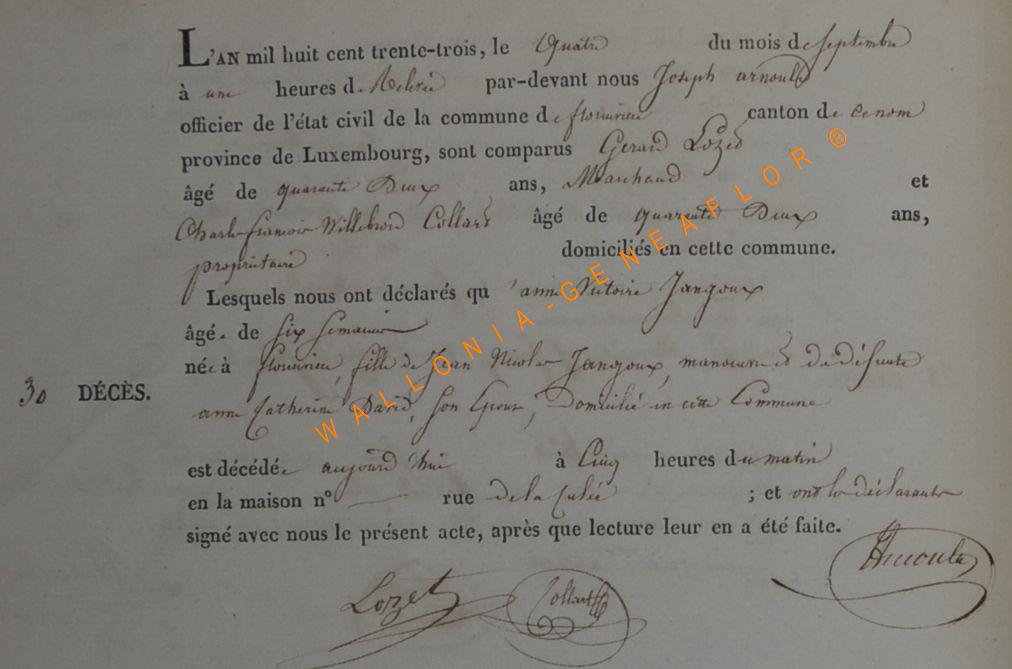 L'AN mil huit cent trente-trois, le Quatre du mois de septembre
à une heures de Relevée par-devant nous Joseph arnould
officier de l'état civil de la commune de florenville canton de
province de Luxembourg, sont comparus Gerard Lozet
âgé de quarante Deux ans, Marchand et
Charles francois Willebrord Collart âgé de quarente Deux ans,
propriétaire domiciliés en cette commune.
Lesquels nous ont déclarés qu'anne Victoire Jangoux
âgée de six semaines
née à florenville, fille de Jean Nicolas Jangoux, manoeuvre et de défunte
30 DÉCÈS.
anne Catherine David, son Epouse, Domicilié en cette Commune
est décédée aujourd'hui à Cinq heures du matin
en la maison n° rue de la Culée ; et ont les déclarants
signé avec nous le présent acte, après que lecture leur en a été faite.
Arnould
Lozet Collart
WALLONIA-GENEAFLOR ®